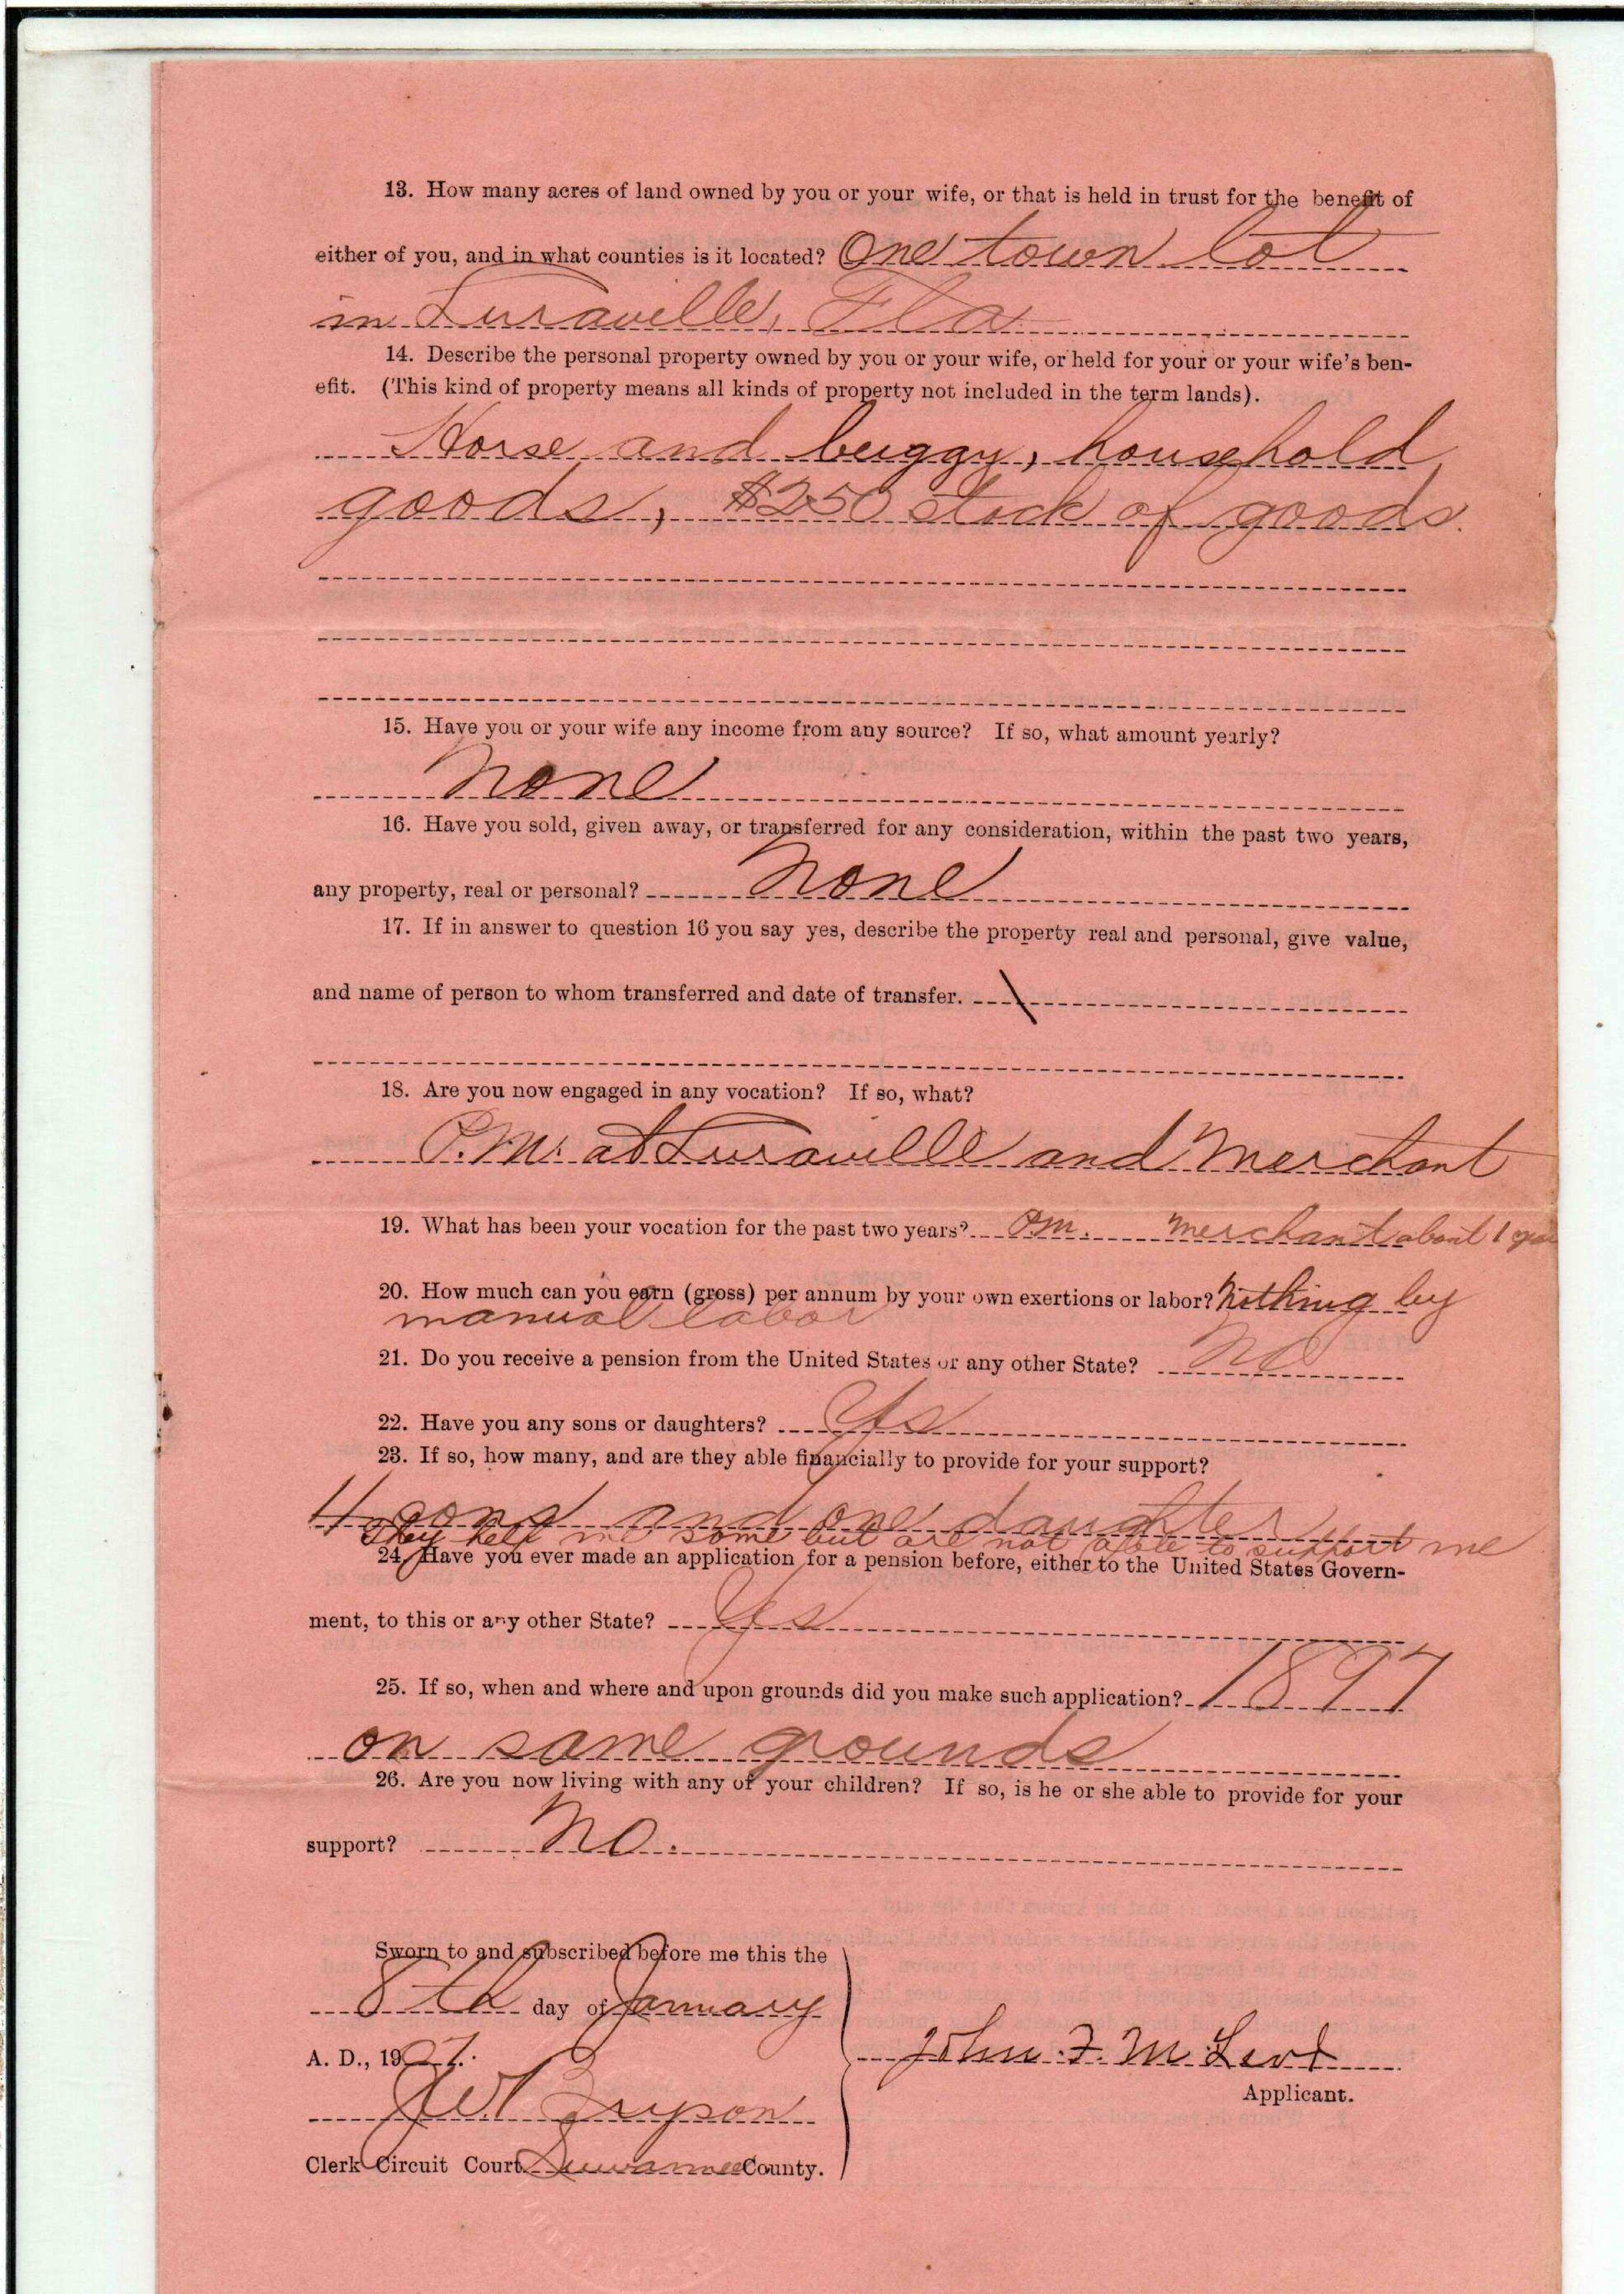 13. How many acres of land owned by you or your wife, or that is held in trust for the benefit of
either of you, and in what counties is it located? One town lot
in Luraville, Fla
14. Describe the personal property owned by you or your wife, or held for your or your wife's ben-
efit. (This kind of property means all kinds of property not included in the term lands).
Horse and buggy, household
goods, $250 stock of goods.
15. Have you or your wife any income from any source? If so, what amount yearly?
None
16. Have you sold, given away, or transferred for any consideration, within the past two years,
any property, real or personal? None
17. If in answer to question 16 you say yes, describe the property real and personal, give value,
and name of person to whom transferred and date of transfer.
18. Are you now engaged in any vocation? If so, what?
P.M. at Luraville and Merchant
19. What has been your vocation for the past two years? P.M. Merchant about 1 year
20. How much can you earn (gross) per annum by your own exertions or labor? Nothing by
manual labor
21. Do you receive a pension from the United States or any other State? No
22. Have you any sons or daughters? Yes
23. If so, how many, and are they able financially to provide for your support?
4 sons and one daughter
They help me some but are not able to support me
24. Have you ever made an application for a pension before, either to the United States Govern-
ment, to this or any other State? Yes
25. If so, when and where and upon grounds did you make such application? 1897
on same grounds
26. Are you now living with any of your children? If so, is he or she able to provide for your
support? No.
Sworn to and subscribed before me this the
8th day of January
A. D., 1907.
John. F. McLeod
Applicant.
J W Bryson
Clerk Circuit Court Suwannee County.